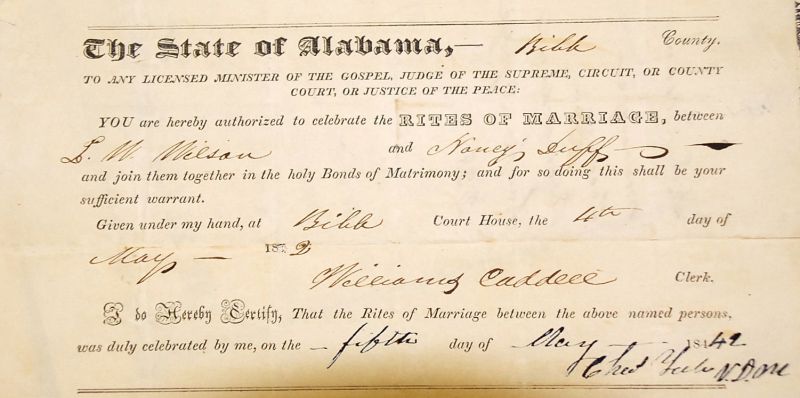 The State of Alabama,— Bibb County.
TO ANY LICENSED MINISTER OF THE GOSPEL, JUDGE OF THE SUPREME, CIRCUIT, OR COUNTY
COURT, OR JUSTICE OF THE PEACE:
YOU are hereby authorized to celebrate the RITES OF MARRIAGE, between
L. W. Wilson and Nancy Duff
and join them together in the holy Bonds of Matrimony; and for so doing this shall be your
sufficient warrant.
Given under my hand, at Bibb Court House, the 4th day of
May 18
Williams Caddell Clerk.
I do Hereby Certify, That the Rites of Marriage between the above named persons,
was duly celebrated by me, on the fifth day of May 1842